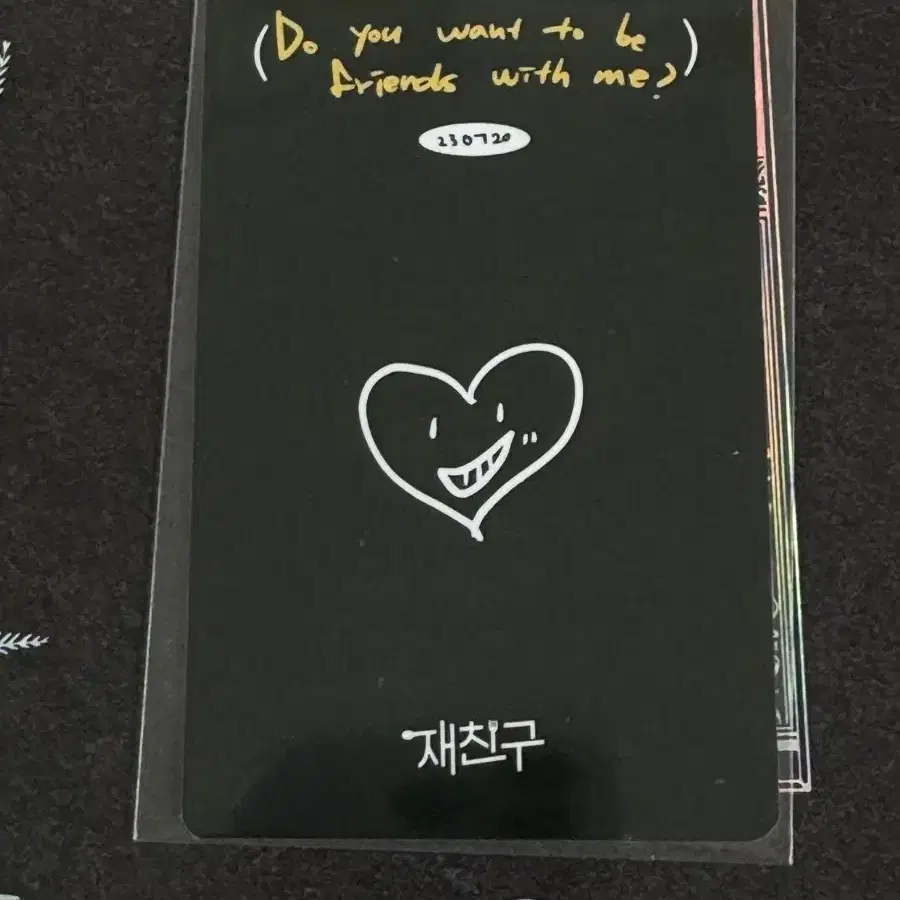 (Do you want to be
friends with me?)
230720
재친구